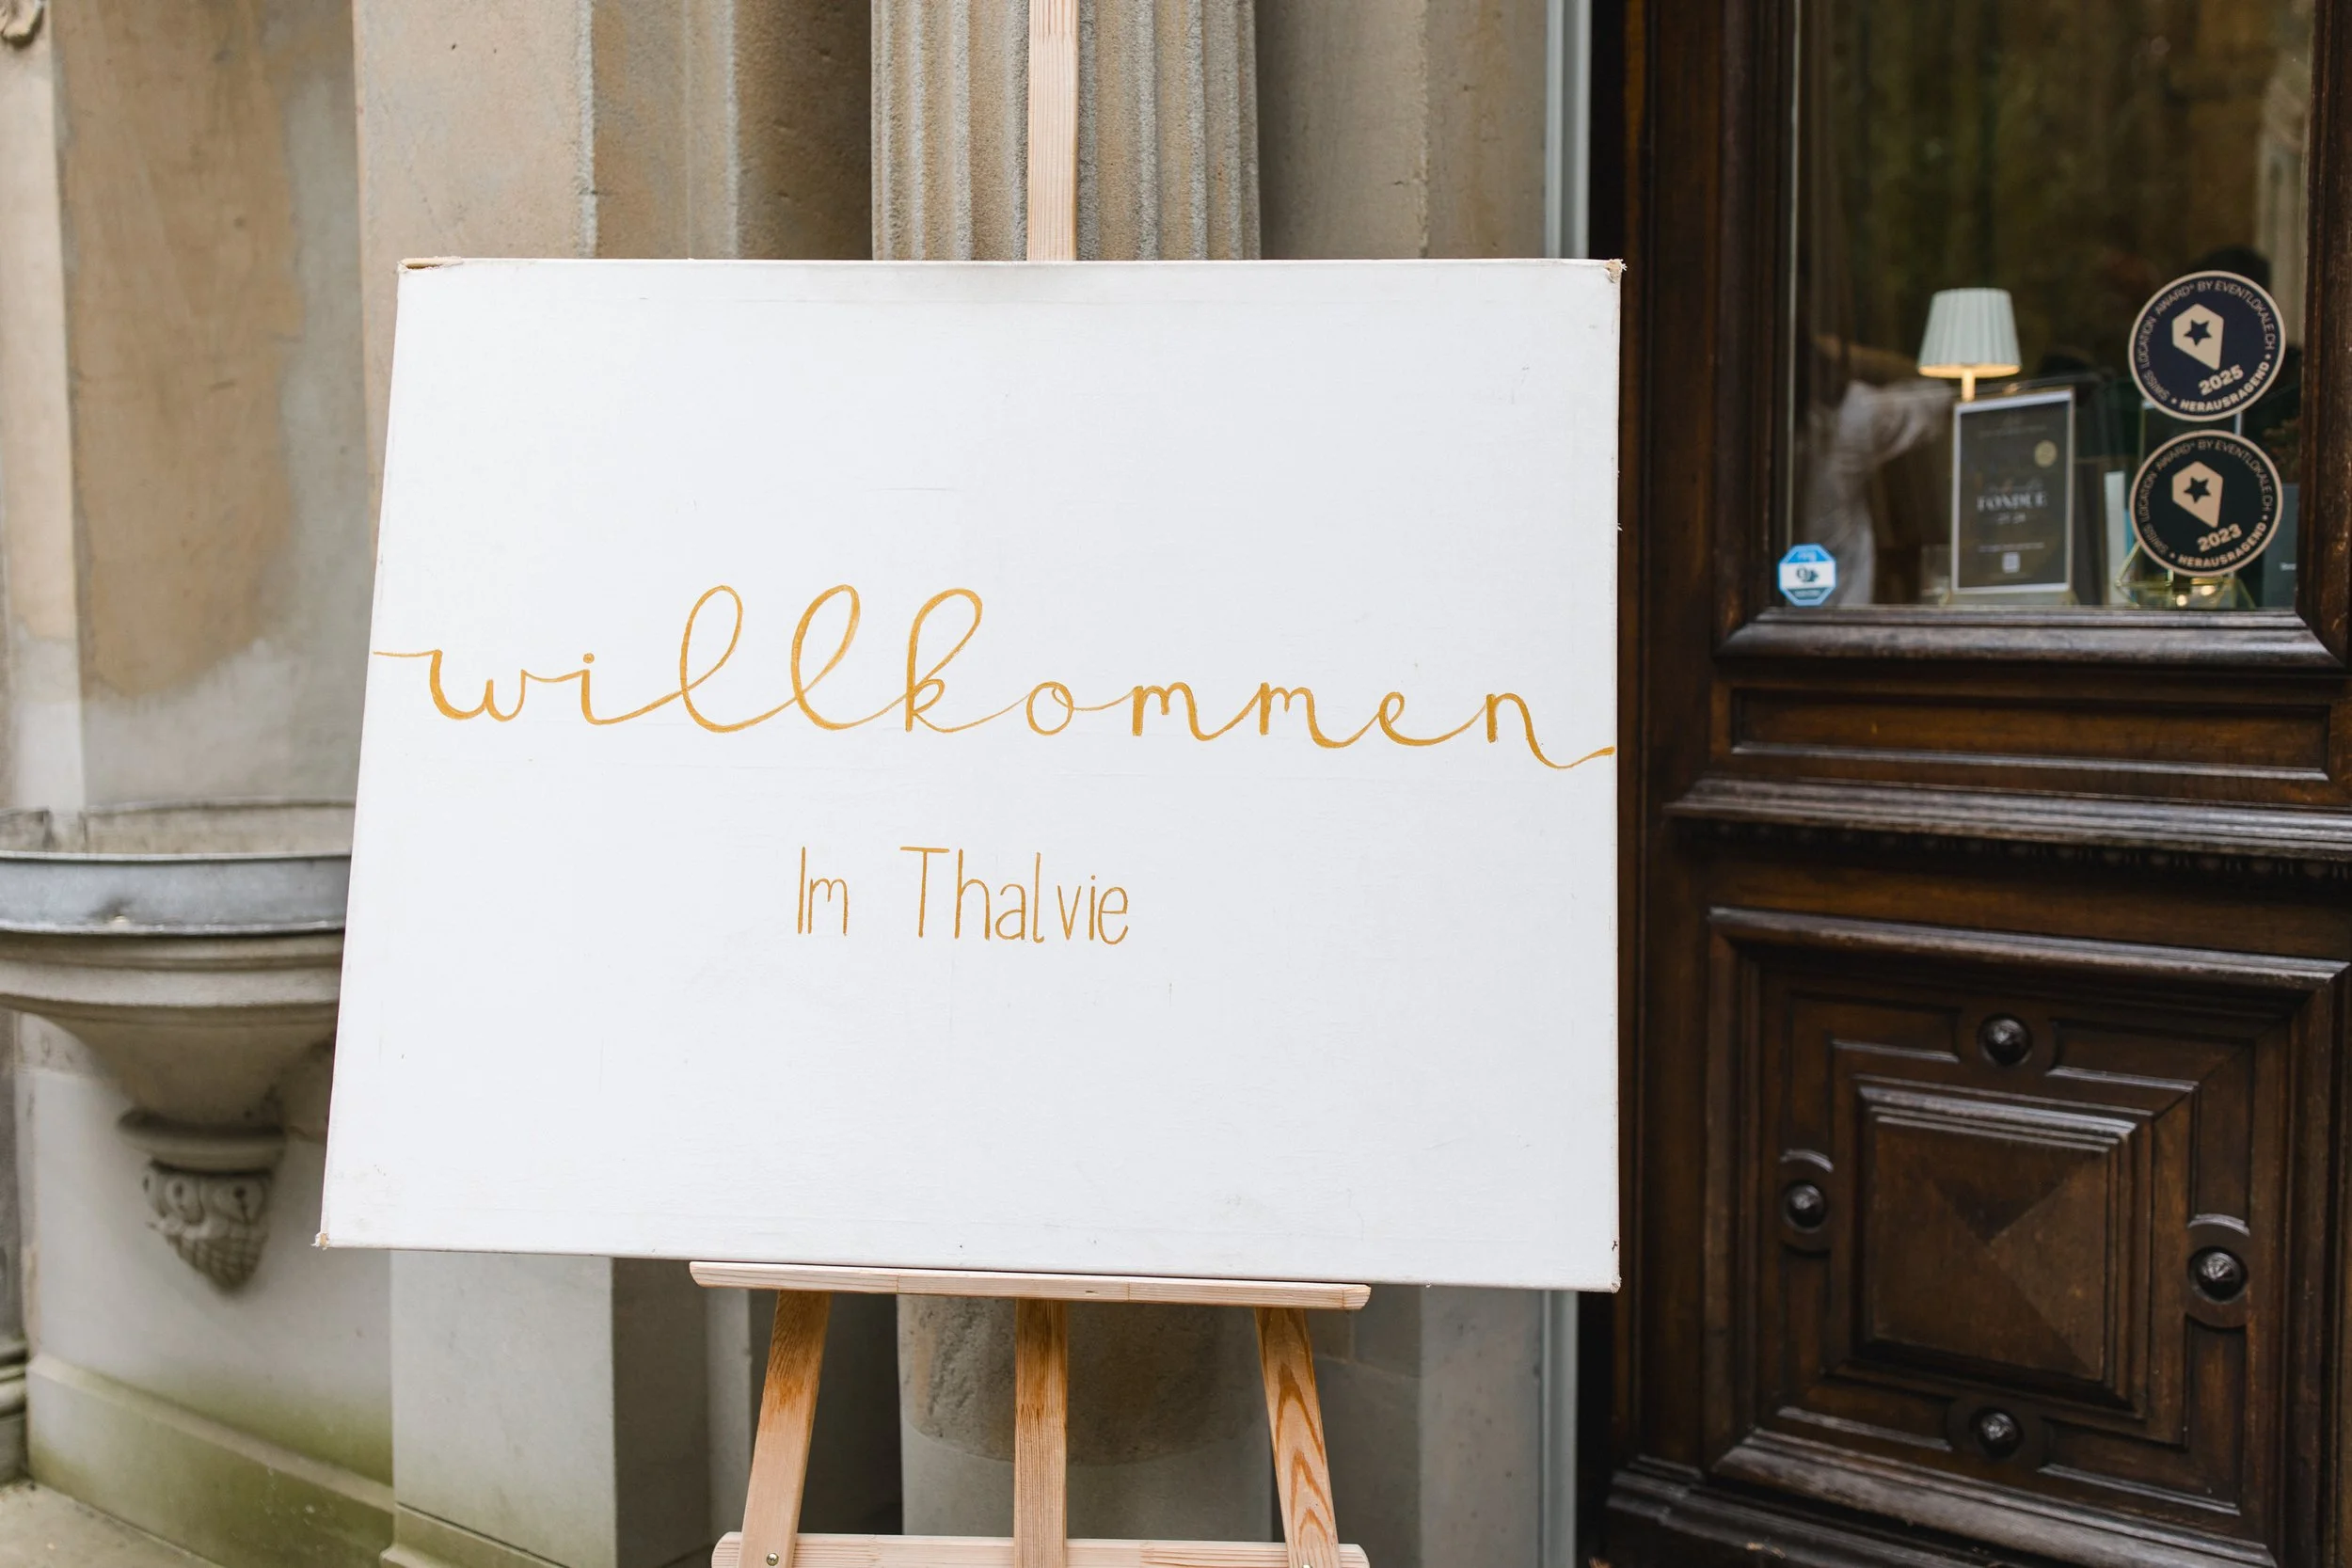 willkommen
Im Thalvie
SWISS LOCATION AWARD® BY EVENTLOKALE.CH
2025
• HERAUSRAGEND •
FONDUE
SWISS LOCATION AWARD® BY EVENTLOKALE.CH
2023
• HERAUSRAGEND •